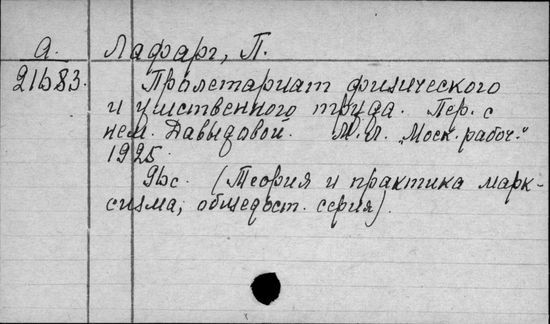 А. Лафарг, П.
21683. Пролетариат физического
и умственного труда. Пер. с
нем. Давыдовой. М.Л. „Моск. рабоч."
1925.
9bc. (Теория и практика марк-
сизма, общедост. серия).